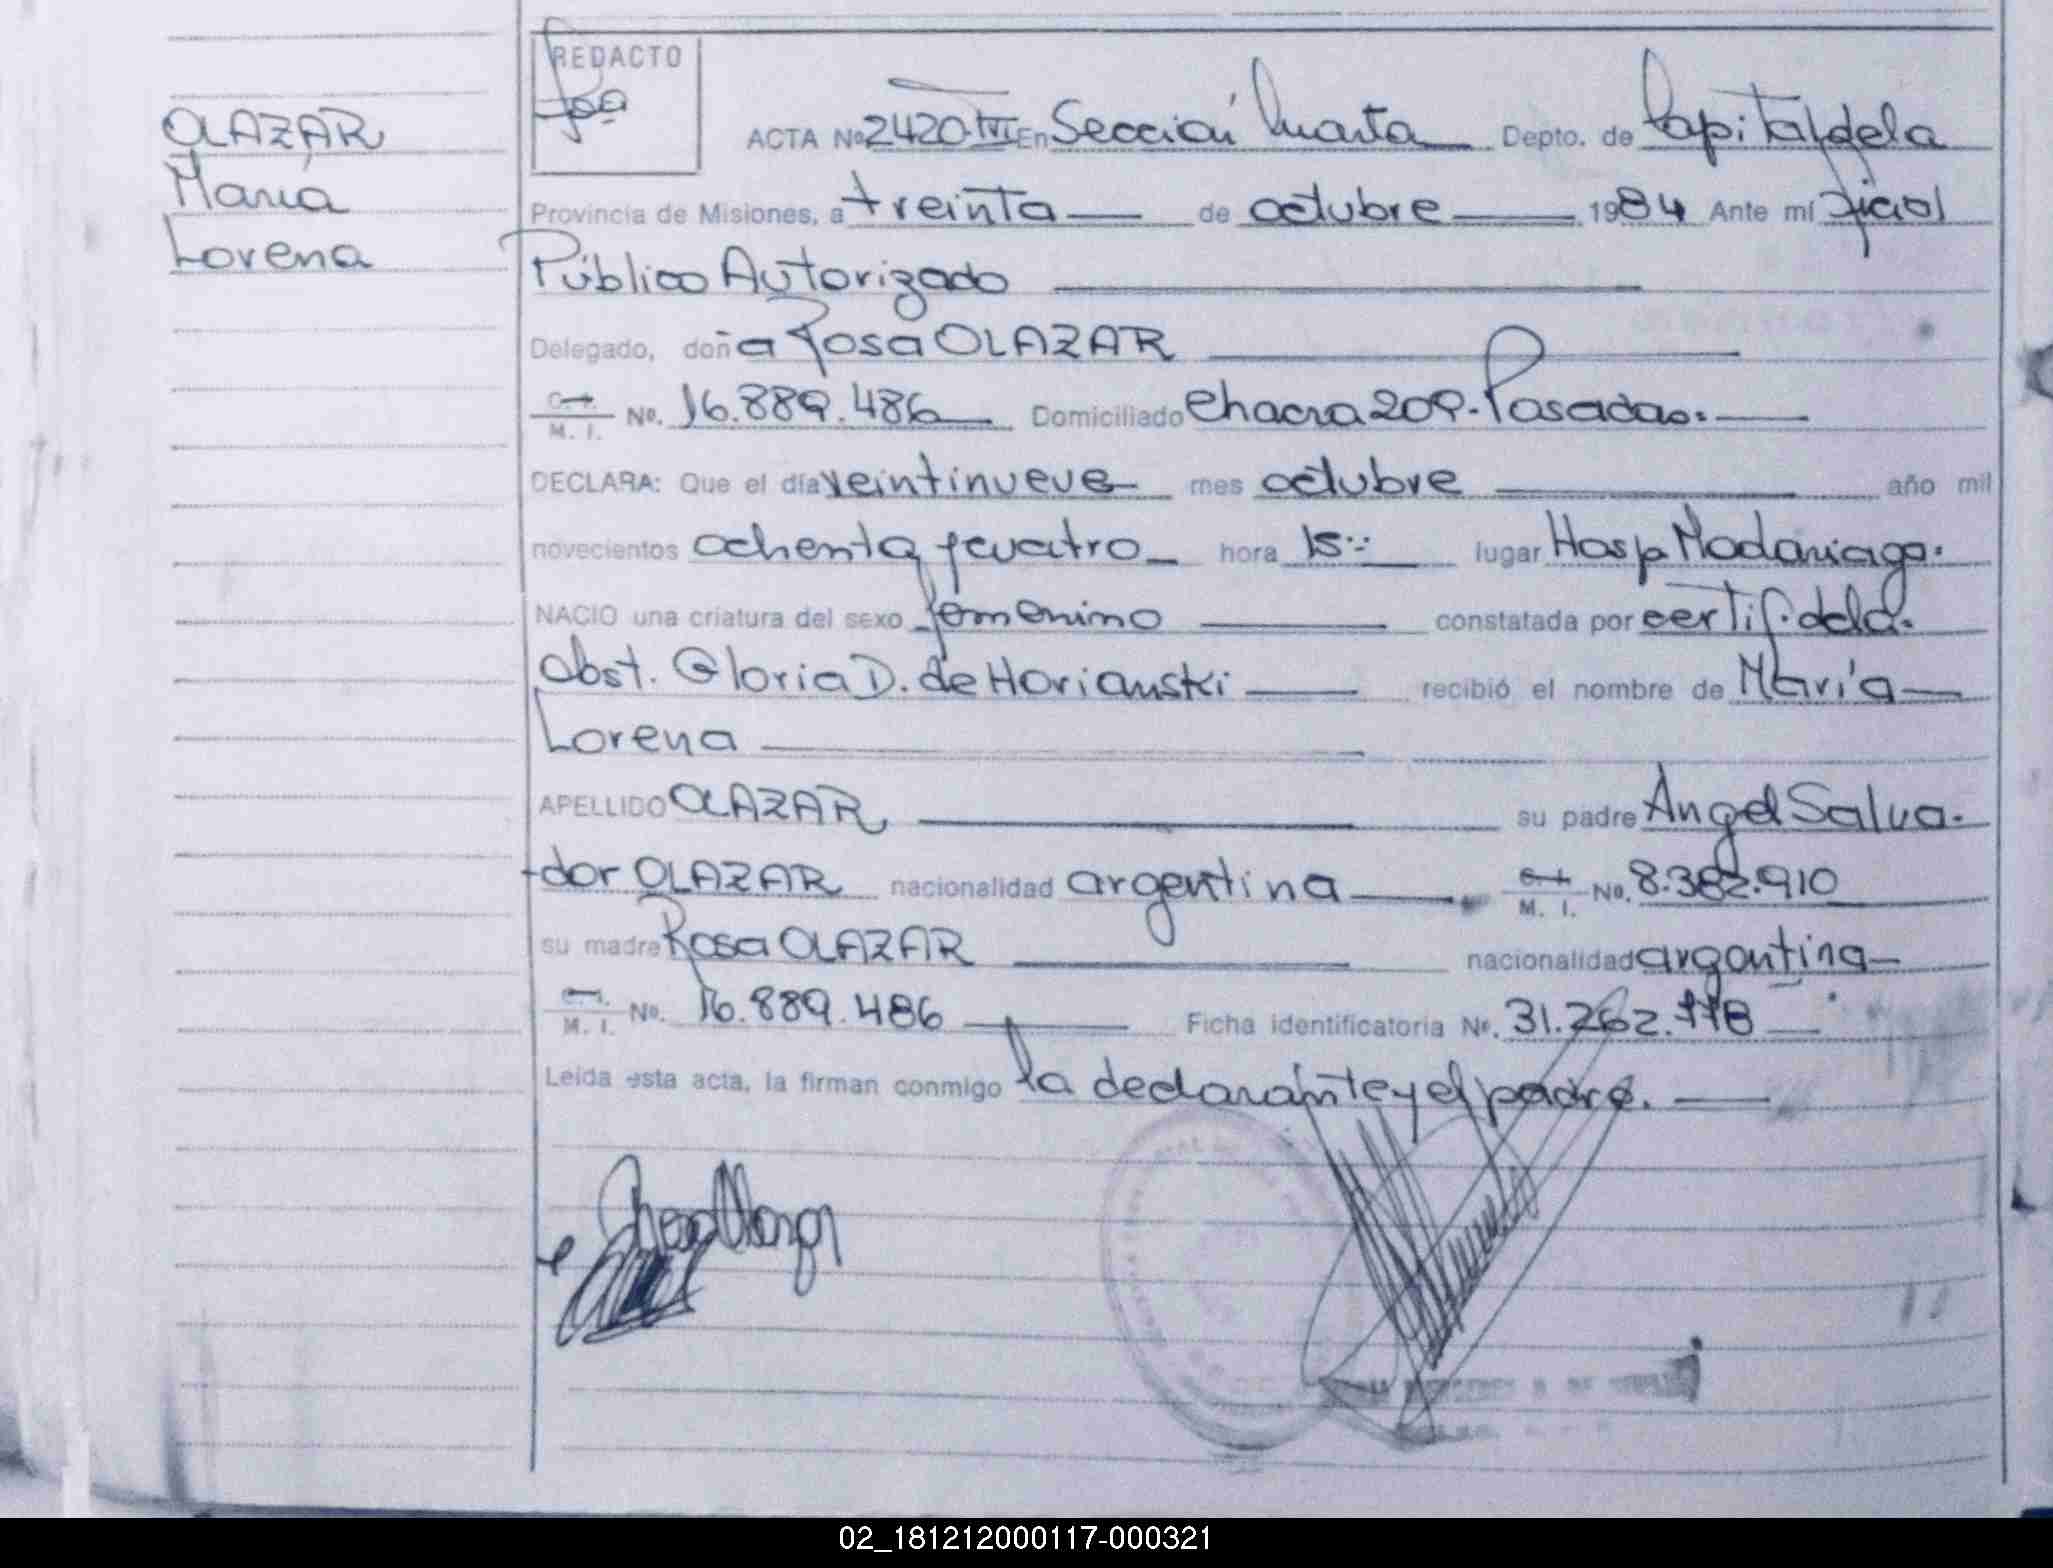 OLAZAR
María
Lorena
REDACTO
ACTA Nº 2420 TVI En Sección Cuarta Depto. de Capital de la
Provincia de Misiones, a treinta de octubre 1984 Ante mí Oficial
Público Autorizado
Delegado, doña Rosa OLAZAR
C. I.
M. I. Nº. 16.889.486 Domiciliado Chacra 209. Posadas.
DECLARA: Que el día veintinueve mes octubre año mil
novecientos ochenta y cuatro hora 15: lugar Hosp Madariaga.
NACIO una criatura del sexo femenino constatada por certif. de la
obst. Gloria D. de Horianski recibió el nombre de María
Lorena
APELLIDO OLAZAR su padre Angel Salva-
dor OLAZAR nacionalidad argentina C. I. M. I. Nº. 8.382.910
su madre Rosa OLAZAR nacionalidad argentina
C. I.
M. I. Nº. 16.889.486 Ficha identificatoria Nº. 31.262.778
Leída esta acta, la firman conmigo la declarante y el padre.
02_181212000117-000321